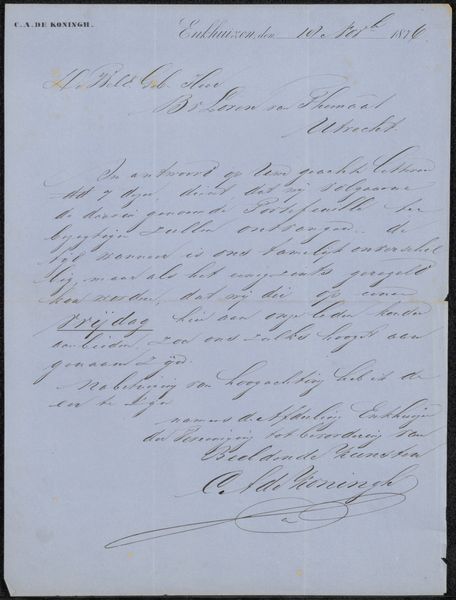 C. A. DE KONINGH.
Enkhuizen, den 10 Novb 1876
Utrecht.
In antwoord op Uwe geachte letteren
dd 7 dezer, dient dat wij volgaarne
de daarin genoemde Portefeuille ter
zullen ontvangen. de
tijd wanneer is ons tamelijk onverschil
lig, maar als het eenigzints geregeld
kon worden, dat wij die op eenen
Vrijdag hier aan onze leden konden
aanbieden, zou ons zulks hoogst aan
genaam zijn.
Na betuiging van hoogachting heb ik de
eer te zijn
namens de Afdeeling Enkhuizen
der Vereeniging tot bevordering van
Beeldende Kunsten
C A de Koningh